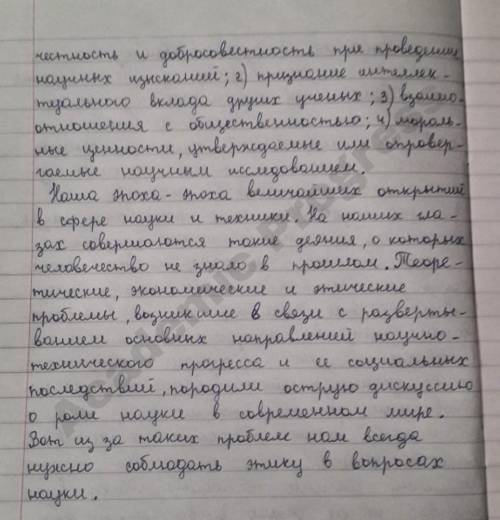 честность и добросовестность при проведении
научных изысканий; 2) признание интеллек-
туального вклада других ученых; 3) взаимо-
отношения с общественностью; 4) мораль-
ные ценности, утверждаемые или опровер-
гаемые научным исследованием.
Наша эпоха - эпоха величайших открытий
в сфере науки и техники. На наших гла-
зах совершаются такие деяния, о которых
человечество не знало в прошлом. Теоре-
тические, экономические и этические
проблемы, возникшие в связи с разверты-
ванием основных направлений научно-
технического прогресса и ее социальных
последствий, породили острую дискуссию
о роли науки в современном мире.
Вот из за таких проблем нам всегда
нужно соблюдать этику в вопросах
науки.
Academic Progress